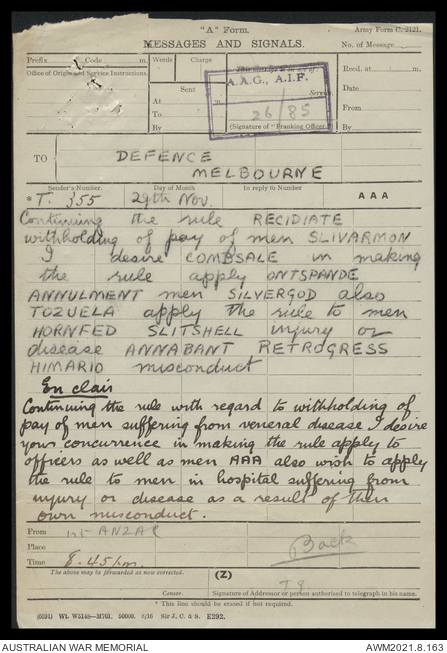 "A" Form. Army Form C. 2121.
MESSAGES AND SIGNALS. No. of Message
Prefix Code m. Words Charge This message is on a/c of: Recd. at m.
Office of Origin and Service Instructions.
A.A.G., A.I.F.
Sent Service. Date
At m. 26/85 From
To
By (Signature of "Franking Officer.") By
TO DEFENCE
MELBOURNE
Sender's Number. Day of Month In reply to Number
* T. 355 29th Nov. AAA
Continuing the rule RECIDIATE
withholding of pay of men SLIVARMON
I desire COMBSALE in making
the rule apply ONTSPANDE
ANNULMENT men SILVERGOD also
TOZUELA apply the rule to men
HORNFED SLITSHELL injury or
disease ANNABANT RETROGRESS
HIMARIO misconduct
En clair
Continuing the rule with regard to withholding of
pay of men suffering from veneral disease I desire
your concurrence in making the rule apply to
officers as well as men AAA also wish to apply
the rule to men in hospital suffering from
injury or disease as a result of their
own misconduct.
From 1st ANZAC
Place Back
Time 8.45 p.m.
The above may be forwarded as now corrected. (Z)
Censor. Signature of Addressor or person authorised to telegraph in his name.
* This line should be erased if not required.
(6031) Wt. W5148—M701. 50000. 8/16 Sir J. C. & S. E292.
AUSTRALIAN WAR MEMORIAL AWM2021.8.163